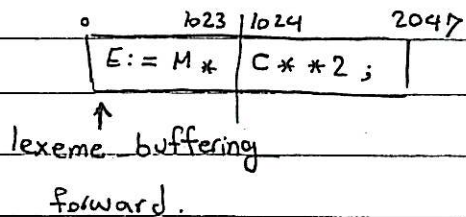 0 1023 1024 2047
E:= M* C**2;
lexeme buffering
forward.